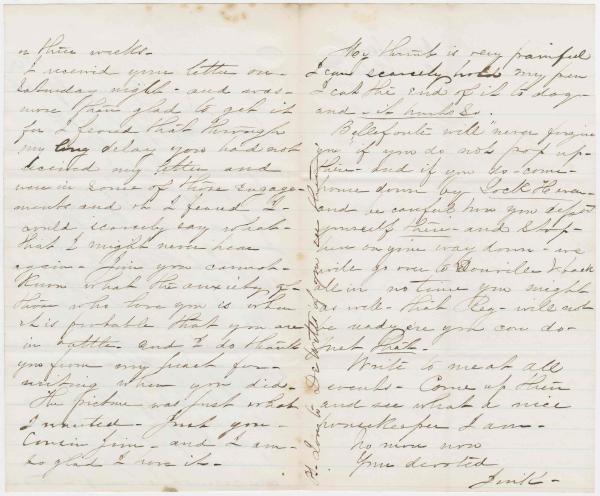 or three weeks-
I received your letter on-
Saturday night- and was-
more than glad to get it
for I feared that through
my long delay you had not
received my letter and
were in some of those engage-
ments and oh I feared I-
could scarcely say what-
that I might never hear
again- Jim you cannot-
know what the anxiety of
those who love you is when
it is probable that you are
in battle. and I do thank
you from my heart for-
writing when you did-
The picture was just what
I wanted- Just you-
Cousin Jim- and I am-
so glad I have it-
My hand is very painful
I can scarcely hold my pen
I cut the end of it to day
and- it hurts so.
Bellefonte will never forgive
you if you do not pop up-
there- and if you do- come-
home down by Lock Haven-
and be careful how you
yourself there- and stop-
on your way down- we
will go over to
all in no time you might
as well- that will not
be ready ere you can do-
just that-
Write to me at all
events- Come up here
and see what a nice
housekeeper I am-
no more now
Your devoted
Love to Dr